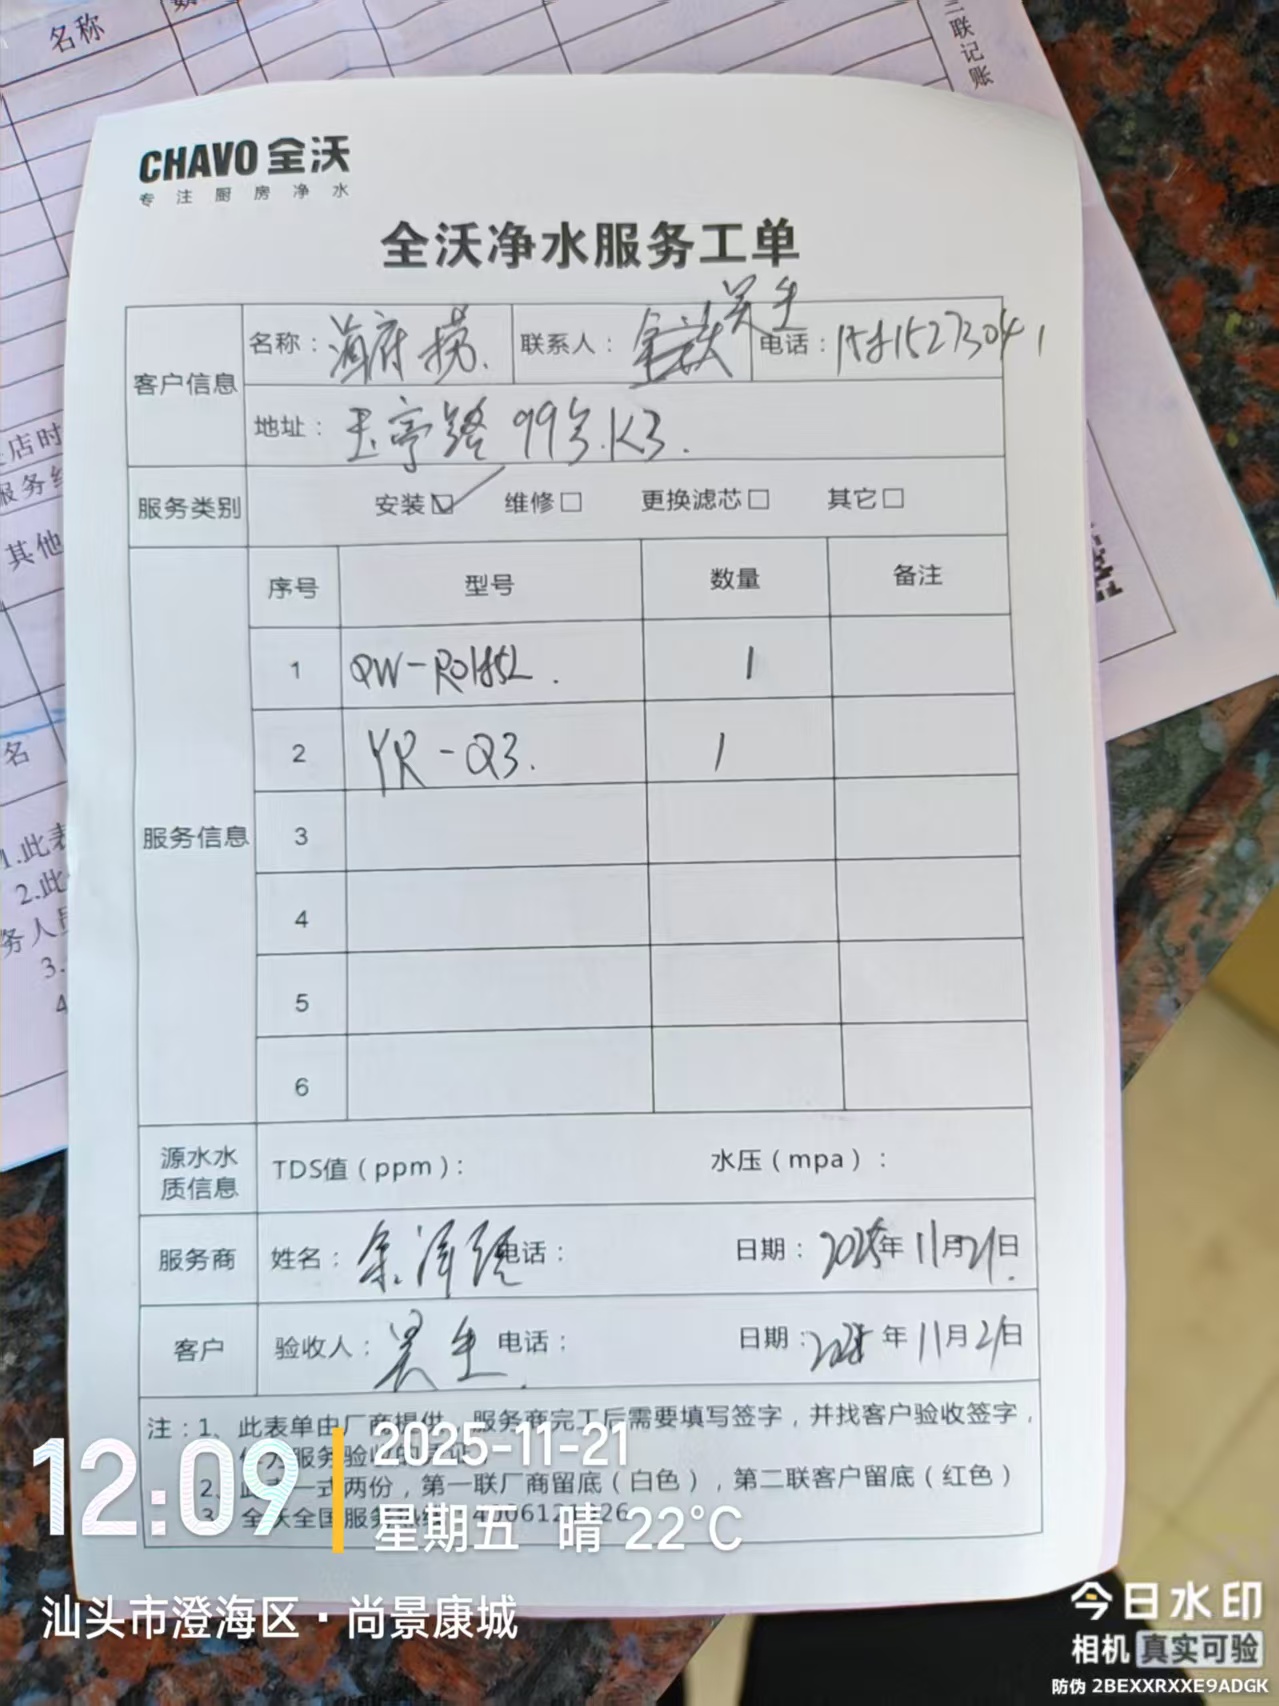 名称
二联记账
CHAVO 全沃
专注厨房净水
全沃净水服务工单
客户信息
名称：海府捞.
联系人：吴生
电话：
地址：玉亭路99号.K3.
服务类别
安装☑ 维修□ 更换滤芯□ 其它□
服务信息
序号 型号 数量 备注
1 QW-R01852. 1
2 YR-Q3. 1
3
4
5
6
源水水质信息
TDS值（ppm）： 水压（mpa）：
服务商 姓名：余泽 电话： 日期：2025年11月21日
客户 验收人：吴生. 电话： 日期：2025年11月21日
注：1、此表单由厂商提供，服务商完工后需要填写签字，并找客户验收签字，
服务验收
2、此 一式两份，第一联厂商留底（白色），第二联客户留底（红色）
3、全沃全国服务热线
店时
服务
其他
名
1.此表
2.此
务人员
3.
4
12:09
2025-11-21
星期五 晴 22℃
汕头市澄海区·尚景康城
今日水印
相机 真实可验
防伪 2BEXXRXXE9ADGK